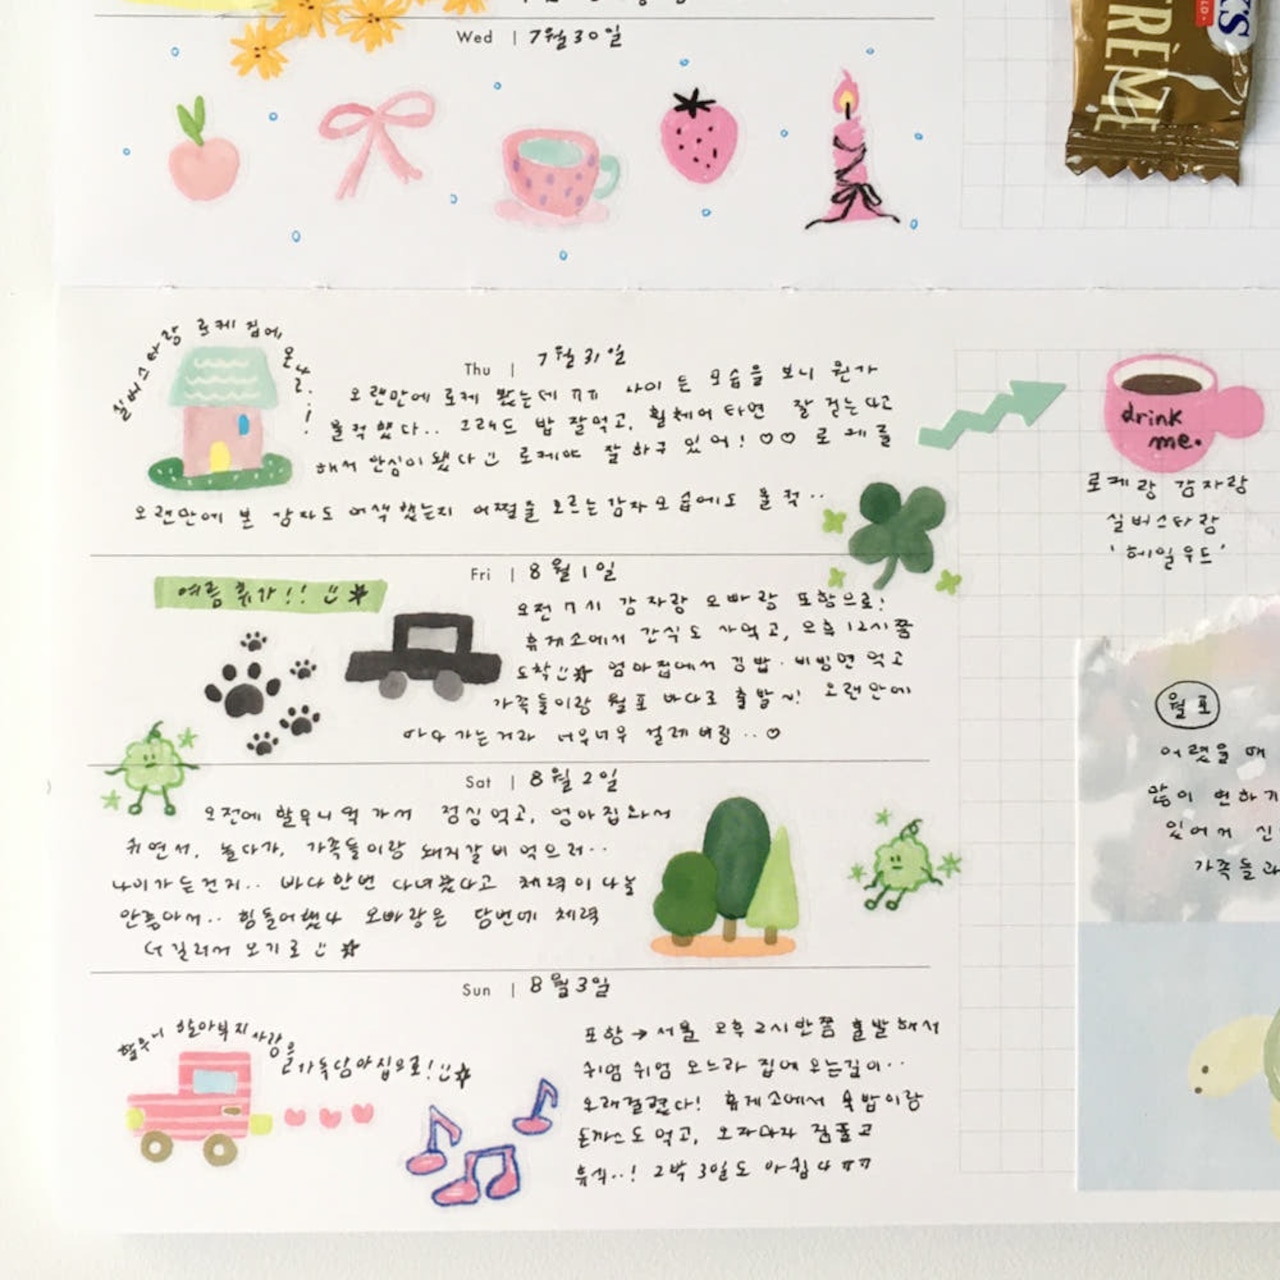 Wed | 7월30일
TRÈME
KS
Thu | 7월 31일
실버스타랑 로케 집에 온 날..!
오랜만에 로케 봤는데 ㅠㅠ 나이 든 모습을 보니 뭔가
울컥했다.. 그래도 밥 잘먹고, 휠체어 타면 잘 걷는다고
해서 안심이 됐다 :) 로케야 잘 하구 있어! ♡♡ 로케를
오랜만에 본 감자도 어색했는지 어쩔줄 모르는 감자모습에도 울컥..
drink
me.
로케랑 감자랑
실버스타랑
'헤일우드'
Fri | 8월 1일
여름 휴가!! :)
오전 7시 감자랑 오빠랑 포항으로!
휴게소에서 간식도 사먹고, 오후 12시쯤
도착 :) 엄마집에서 김밥·비빔면 먹고
가족들이랑 월포 바다로 출발~! 오랜만에
바다 가는거라 너우너우 설레버림..♡
Sat | 8월 2일
오전에 할무니댁 가서 점심먹고, 엄마집와서
쉬면서, 놀다가, 가족들이랑 돼지갈비 먹으러..
나이가 든건지.. 바다 한번 다녀왔다고 체력이 다날
안좋아서.. 힘들어했다 오빠랑은 담번에 체력
더 길러서 오기로 :)
월포
어렸을 때
많이 변하기
있어서
가족들과
Sun | 8월 3일
할무니 할아부지 사랑을 가득담아집으로! :)
포항→서울 오후 2시반쯤 출발해서
쉬엄 쉬엄 오느라 집에 오는길이..
오래걸렸다! 휴게소에서 육밥이랑
돈까스도 먹고, 오자마자 짐풀고
휴식..! 2박 3일도 아쉽다 ㅠㅠ